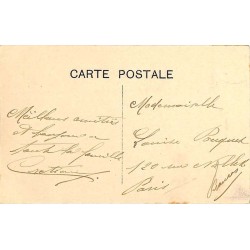 CARTE POSTALE
Meilleures amitiés
et bonjour à
toute la famille
Mademoiselle
Louise
120 rue Nollet
Paris